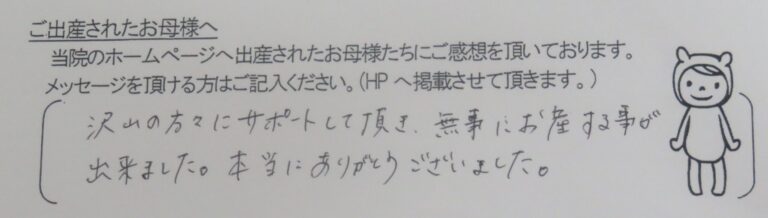 ご出産されたお母様へ
当院のホームページへ出産されたお母様たちにご感想を頂いております。
メッセージを頂ける方はご記入ください。(HPへ掲載させて頂きます。)
沢山の方々にサポートして頂き、無事にお産する事が
出来ました。本当にありがとうございました。